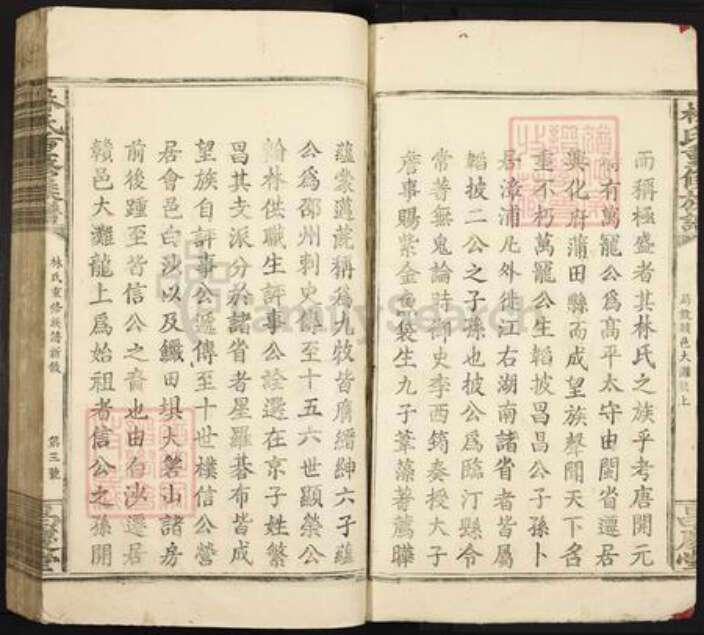 而稱極盛者其林氏之族乎考唐開元
間有萬寵公爲高平太守由閩省遷居
興化府蒲田縣而成望族聲聞天下名
垂不朽萬寵公生韜披昌昌公子孫卜
居漳浦凡外徙江右湖南諸省者皆屬
韜披二公之子孫也披公爲臨汀縣令
常著無鬼論時御史李西筠奏授大子
詹事賜紫金魚袋生九子葦藻著薦曄
蘊蒙邁蔇稱爲九牧皆膺縉紳六子蘊
公爲邵州刺史傳至十五六世顯榮公
翰林供職生評事公詮選在京子姓繁
昌其支派分於諸省者星羅碁布皆成
望族自評事公遞傳至十世樸信公營
居會邑白沙以及鐵田垻大磐山諸房
前後踵至皆信公之裔也由白沙遷居
贛邑大灘龍上爲始祖者信公之孫開
林氏重修族譜
林氏重修族譜新敘
第三號
FamilySearch